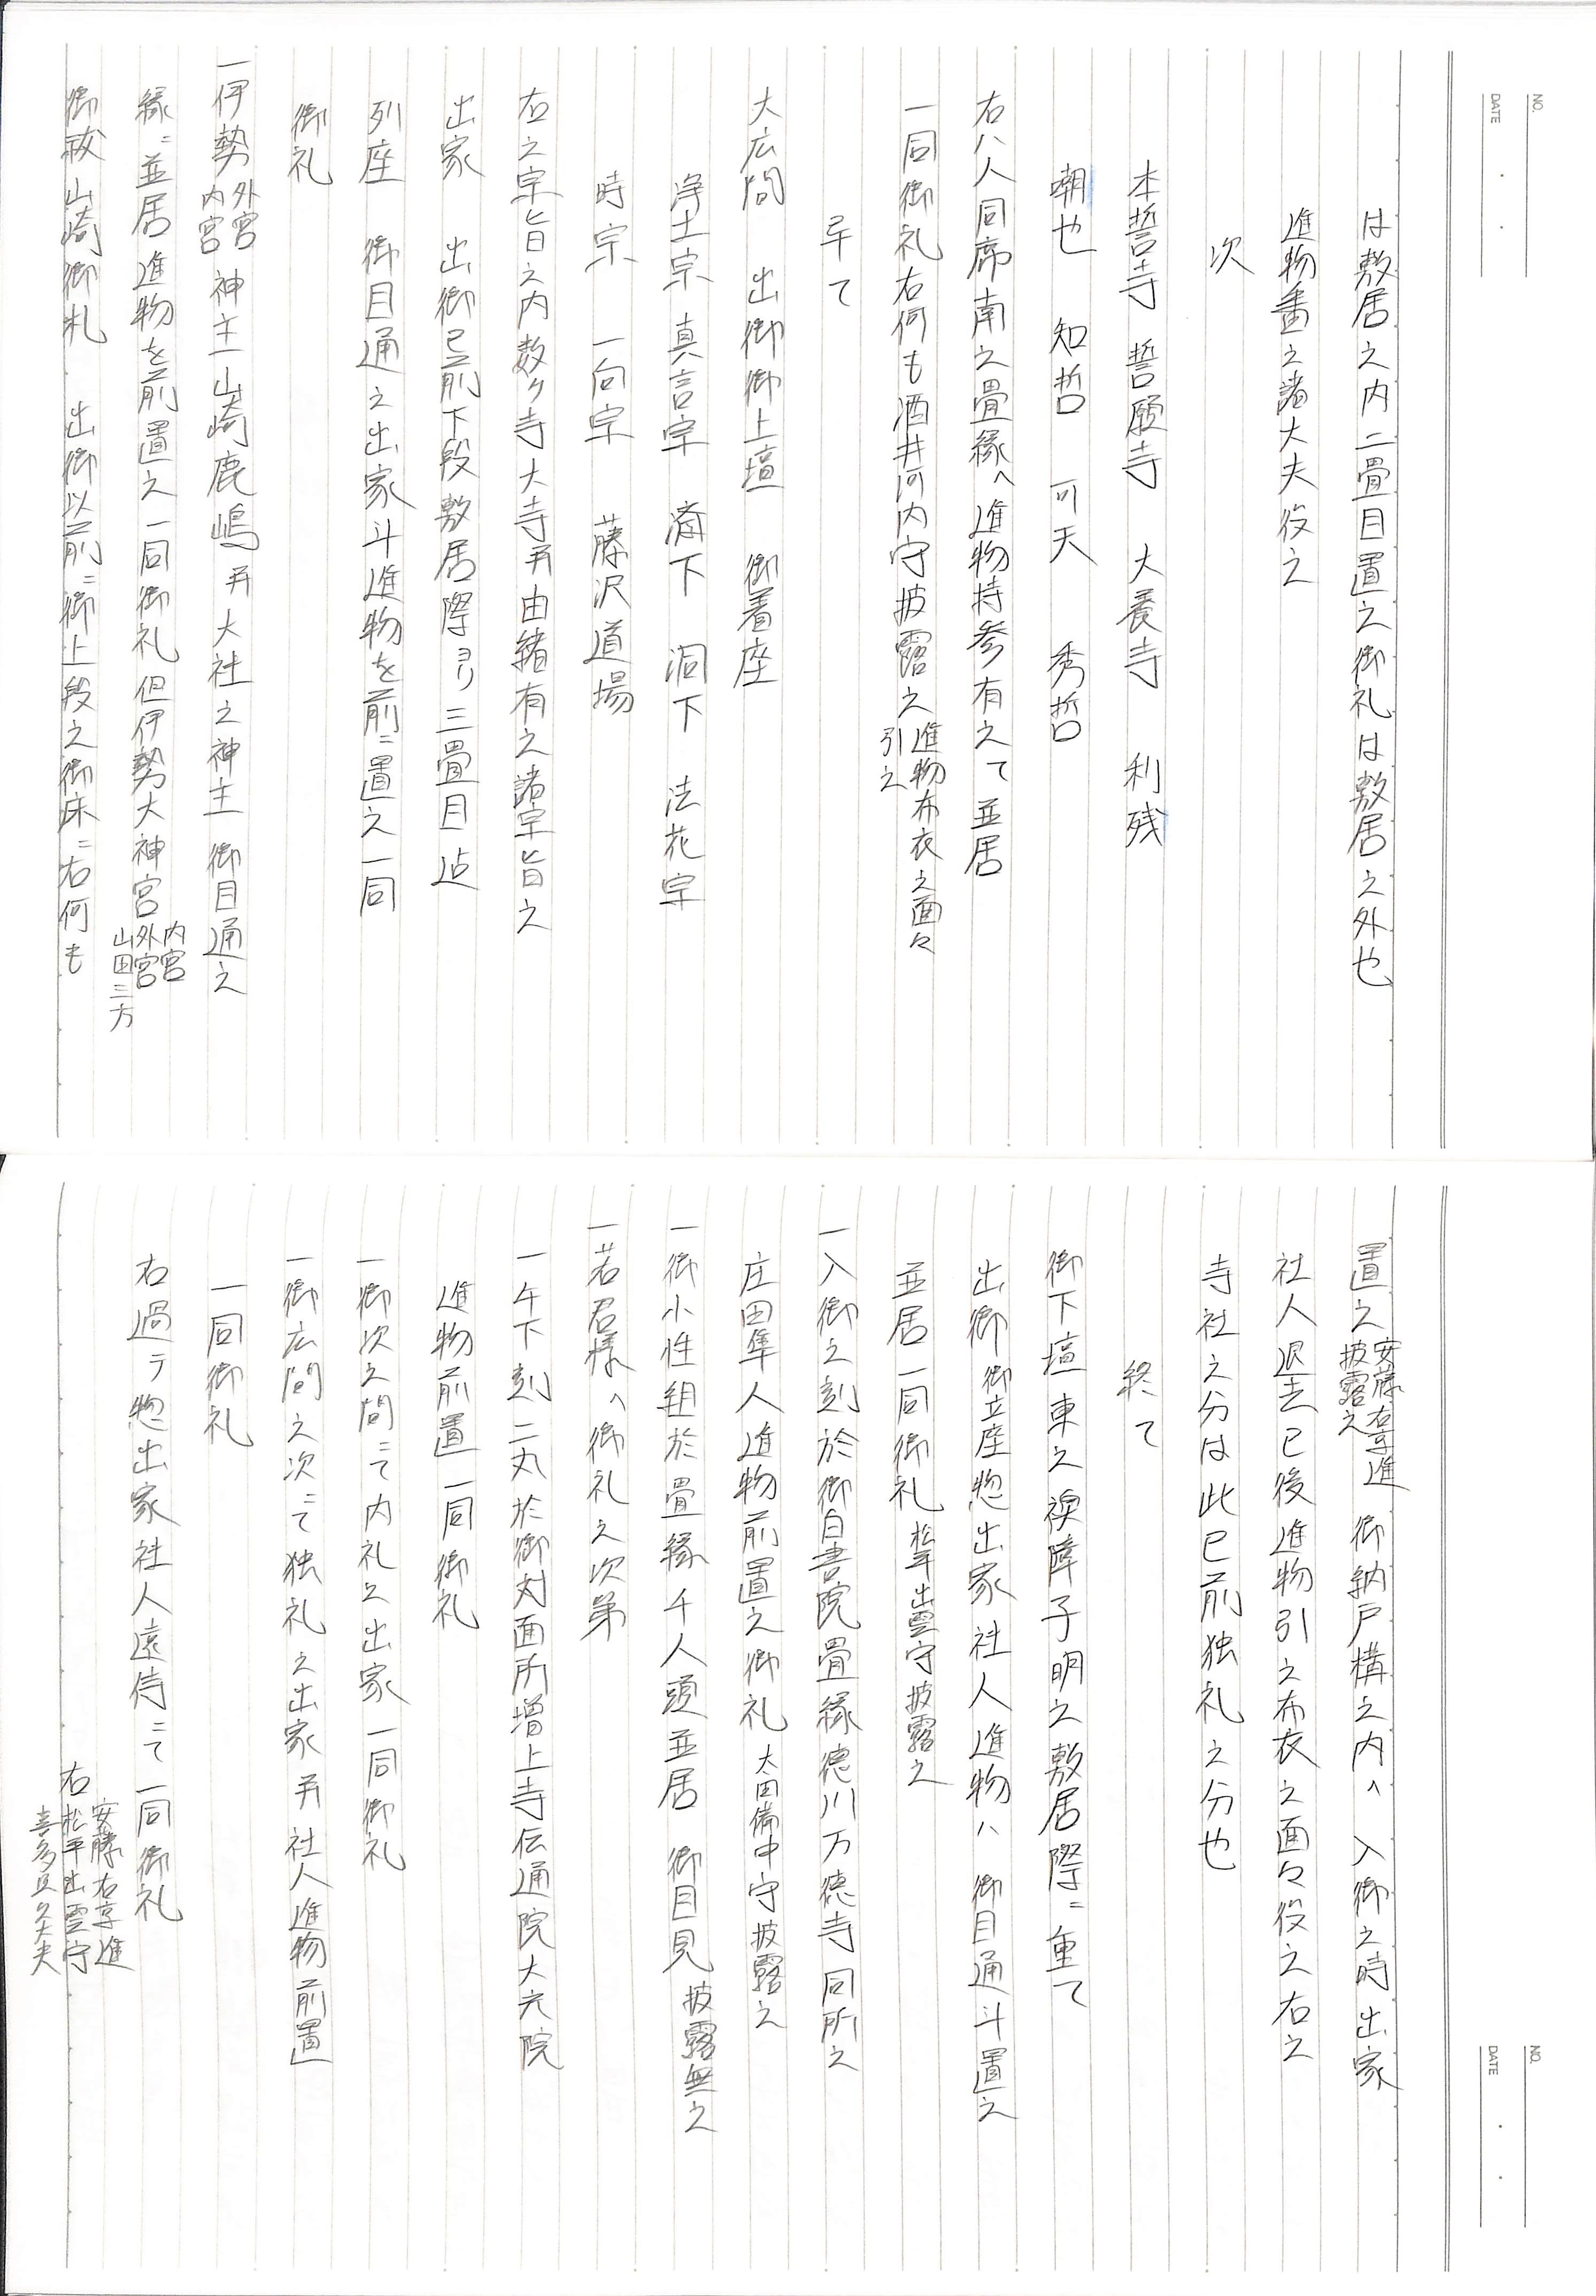 NO.
DATE
は敷居之内二畳目置之御礼は敷居之外也
進物番之諸大夫役之
次
本誓寺 誓願寺 大養寺 利残
嘲也 知哲 可天 秀哲
右八人同席南之畳縁へ進物持参有之て並居
一同御礼右何も酒井河内守披露之 進物布衣之面々引之
畢て
大広間 出御御上壇 御着座
浄土宗 真言宗 済下 洞下 法花宗
時宗 一向宗 藤沢道場
右之宗旨之内数ケ寺大寺并由緒有之諸宗旨之
出家 出御已前下段敷居際ヨリ三畳目迠
列座 御目通之出家斗進物を前ニ置之一同
御礼
一伊勢 外宮 内宮 神主山崎鹿嶋并大社之神主 御目通之
縁ニ並居進物を前置之一同御礼但伊勢大神宮 内宮 外宮 山田三方
御祓山崎御札 出御以前ニ御上段之御床ニ右何も
NO.
DATE
置之 安藤右京進 披露之 御納戸構之内へ 入御之時出家
社人退去已後進物引之布衣之面々役之右之
寺社之分は此已前独礼之分也
終て
御下壇東之襖障子明之敷居際ニ重て
出御 御立座惣出家社人進物ハ 御目通斗置之
並居一同御礼 松平出雲守披露之
一入御之刻於御白書院畳縁徳川万徳寺同所之
庄田隼人進物前置之御礼 太田備中守披露之
一御小性組於畳縁千人頭並居 御目見 披露無之
一若君様へ御礼之次第
一午下刻二丸於御対面所増上寺伝通院大元院
進物前置一同御礼
一御次之間ニて内礼之出家一同御礼
一御広間之次ニて独礼之出家并社人進物前置
一同御礼
右過テ惣出家社人遠侍ニて一同御礼
右 安藤右京進 松平出雲守 喜多見久大夫